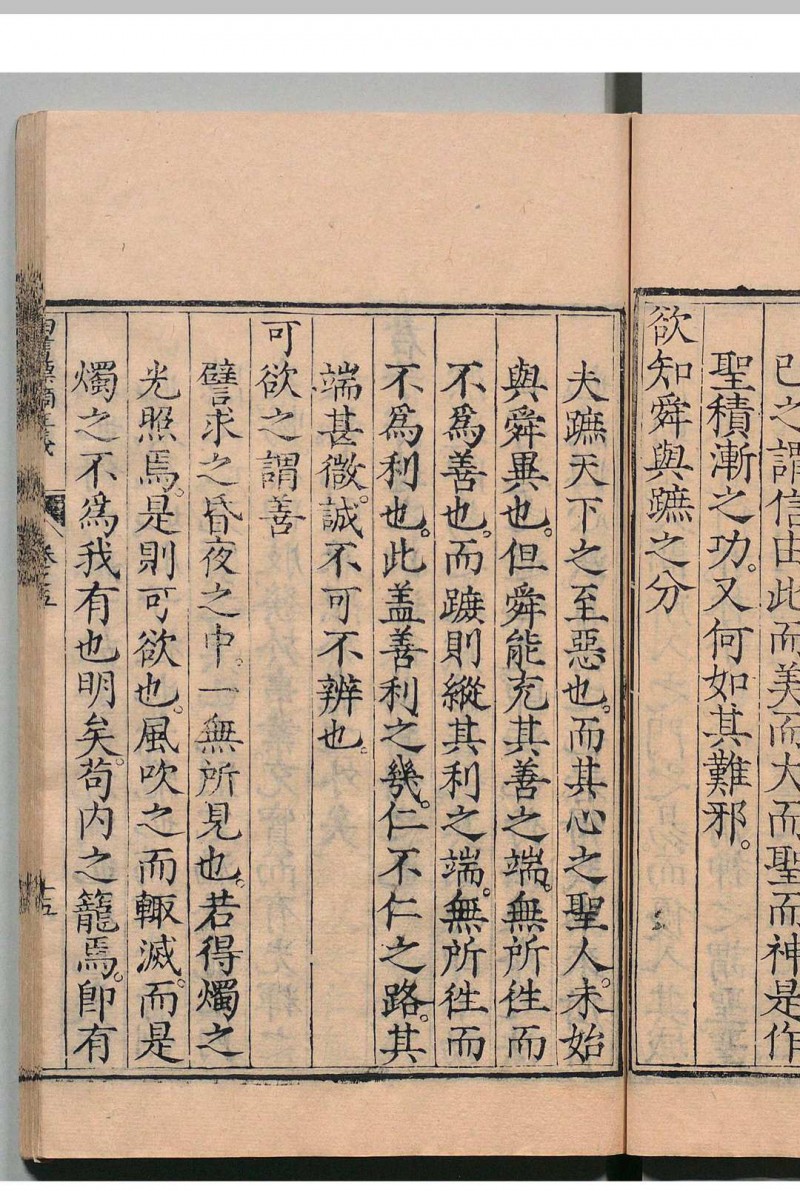 已之謂信由此而美而大而聖而神是作
聖積漸之功。又何如其難邪。
欲知舜與蹠之分
夫蹠天下之至惡也。而其心之聖人。未始
與舜異也。但舜能充其善之端。無所徃而
不爲善也。而蹠則縱其利之端。無所徃而
不爲利也。此盖善利之幾。仁不仁之路。其
端甚微。誠不可不辨也。
可欲之謂善
譬求之昏夜之中。一無所見也。若得燭之
光照焉。是則可欲也。風吹之而輙滅。而是
燭之不爲我有也明矣。苟内之籠焉。卽有
卷之五
十五